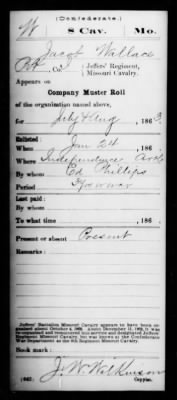 (Confederate.)
W 8 Cav. Mo.
Jacob Wallace
Pvt, Co. Jeffers' Regiment,
Missouri Cavalry.
Appears on
Company Muster Roll
of the organization named above,
for July & Aug, 186 3.
Enlisted:
When Jan 24, 186 .
Where Independence Ark
By whom Ed Phillips
Period war
Last paid:
By whom
To what time , 186 .
Present or absent Present
Remarks:
Jeffers' Battalion Missouri Cavalry appears to have been organized about October 4, 1862. About December 11, 1862, it was re-organized and remustered into service and designated Jeffers' Regiment Missouri Cavalry, but was known at the Confederate War Department as the 8th Regiment Missouri Cavalry.
Book mark:
J. W. Wilkinson
(642) Copyist.